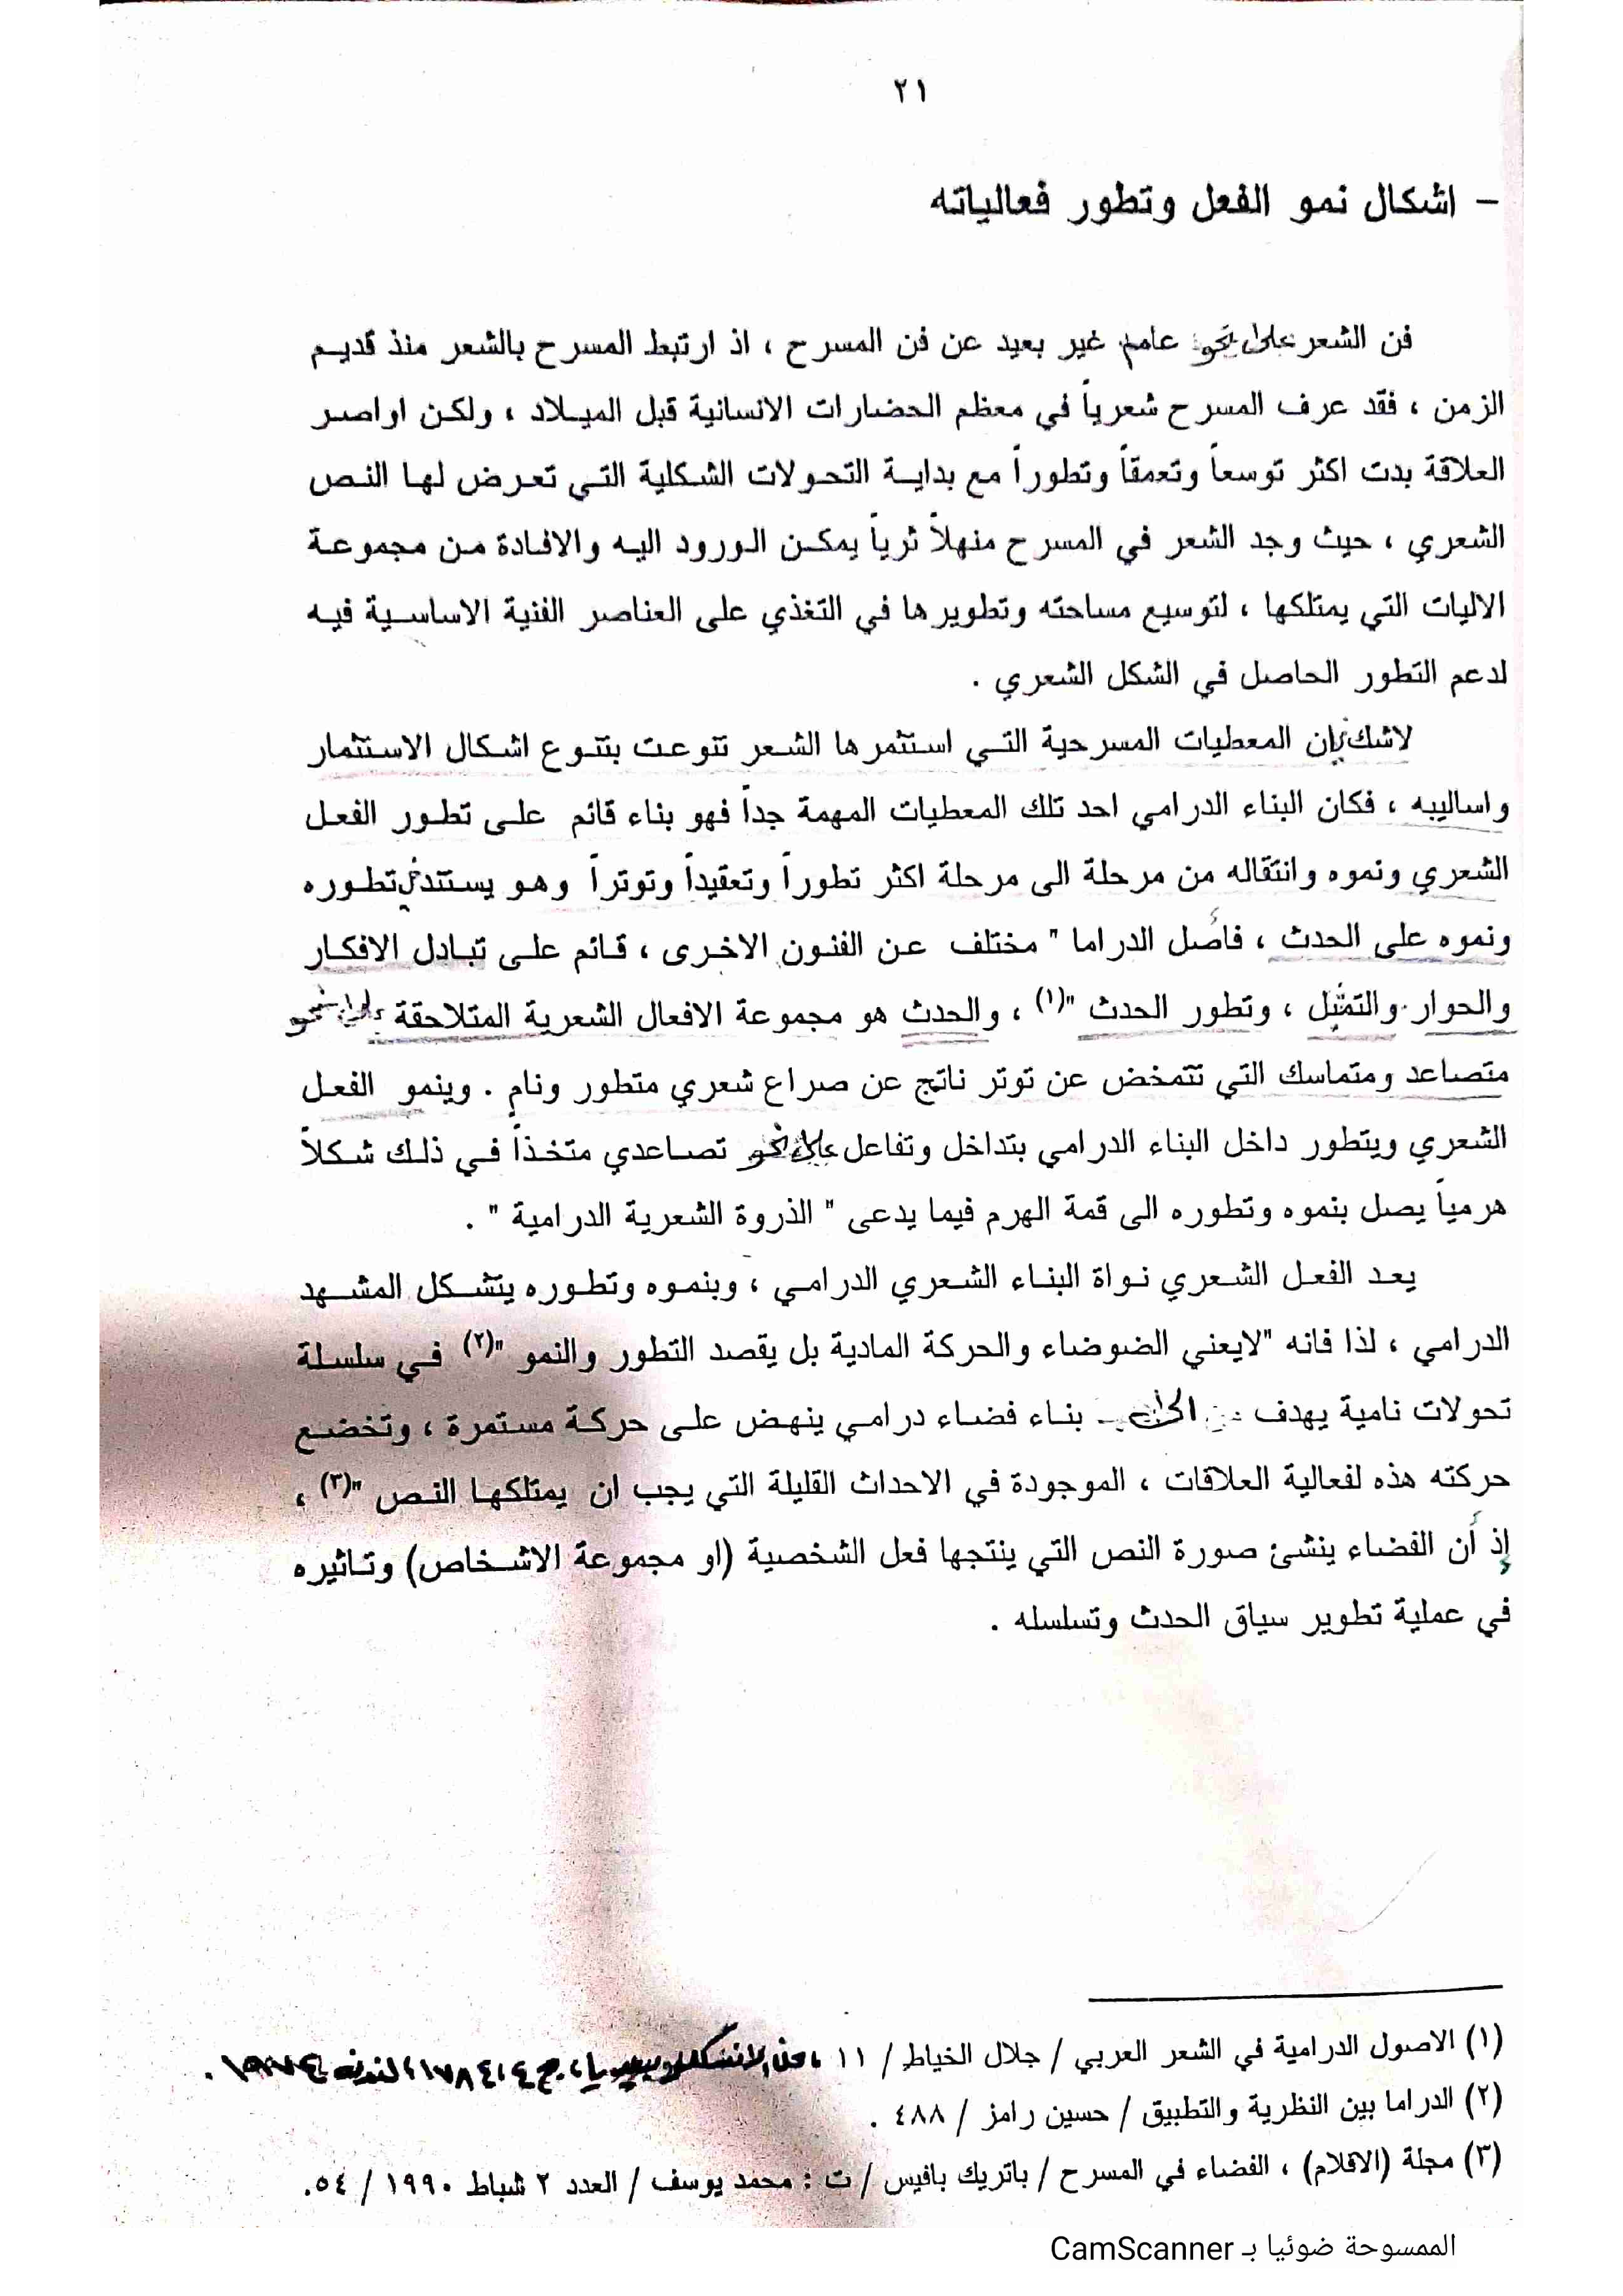 ٢١
- اشكال نمو الفعل وتطور فعالياته
فن الشعر على نحو عام غير بعيد عن فن المسرح ، اذ ارتبط المسرح بالشعر منذ قديم
الزمن ، فقد عرف المسرح شعرياً في معظم الحضارات الانسانية قبل الميلاد ، ولكن اواصر
العلاقة بدت اكثر توسعاً وتعمقاً وتطوراً مع بداية التحولات الشكلية التي تعرض لها النص
الشعري ، حيث وجد الشعر في المسرح منهلاً ثرياً يمكن الورود اليه والافادة من مجموعة
الاليات التي يمتلكها ، لتوسيع مساحته وتطويرها في التغذي على العناصر الفنية الاساسية فيه
لدعم التطور الحاصل في الشكل الشعري .
لاشك في ان المعطيات المسرحية التي استثمرها الشعر تنوعت بتنوع اشكال الاستثمار
واساليبه ، فكان البناء الدرامي احد تلك المعطيات المهمة جداً فهو بناء قائم على تطور الفعل
الشعري ونموه وانتقاله من مرحلة الى مرحلة اكثر تطوراً وتعقيداً وتوتراً وهو يستند في تطوره
ونموه على الحدث ، فأصل الدراما " مختلف عن الفنون الاخرى ، قائم على تبادل الافكار
والحوار والتمثيل ، وتطور الحدث "(١) ، والحدث هو مجموعة الافعال الشعرية المتلاحقة على نحو
متصاعد ومتماسك التي تتمخض عن توتر ناتج عن صراع شعري متطور ونامٍ . وينمو الفعل
الشعري ويتطور داخل البناء الدرامي بتداخل وتفاعل على نحو تصاعدي متخذاً في ذلك شكلاً
هرمياً يصل بنموه وتطوره الى قمة الهرم فيما يدعى " الذروة الشعرية الدرامية " .
يعد الفعل الشعري نواة البناء الشعري الدرامي ، وبنموه وتطوره يتشكل المشهد
الدرامي ، لذا فانه "لايعني الضوضاء والحركة المادية بل يقصد التطور والنمو "(٢) في سلسلة
تحولات نامية يهدف الى بناء فضاء درامي ينهض على حركة مستمرة ، وتخضع
حركته هذه لفعالية العلاقات ، الموجودة في الاحداث القليلة التي يجب ان يمتلكها النص "(٣) ،
إذ أن الفضاء ينشئ صورة النص التي ينتجها فعل الشخصية (او مجموعة الاشخاص) وتاثيره
في عملية تطوير سياق الحدث وتسلسله .
(١) الاصول الدرامية في الشعر العربي / جلال الخياط / ١١ ،
(٢) الدراما بين النظرية والتطبيق / حسين رامز / ٤٨٨ .
(٣) مجلة (الاقلام) ، الفضاء في المسرح / باتريك بافيس / ت : محمد يوسف / العدد ٢ شباط ١٩٩٠ / ٥٤.
الممسوحة ضوئيا بـ CamScanner